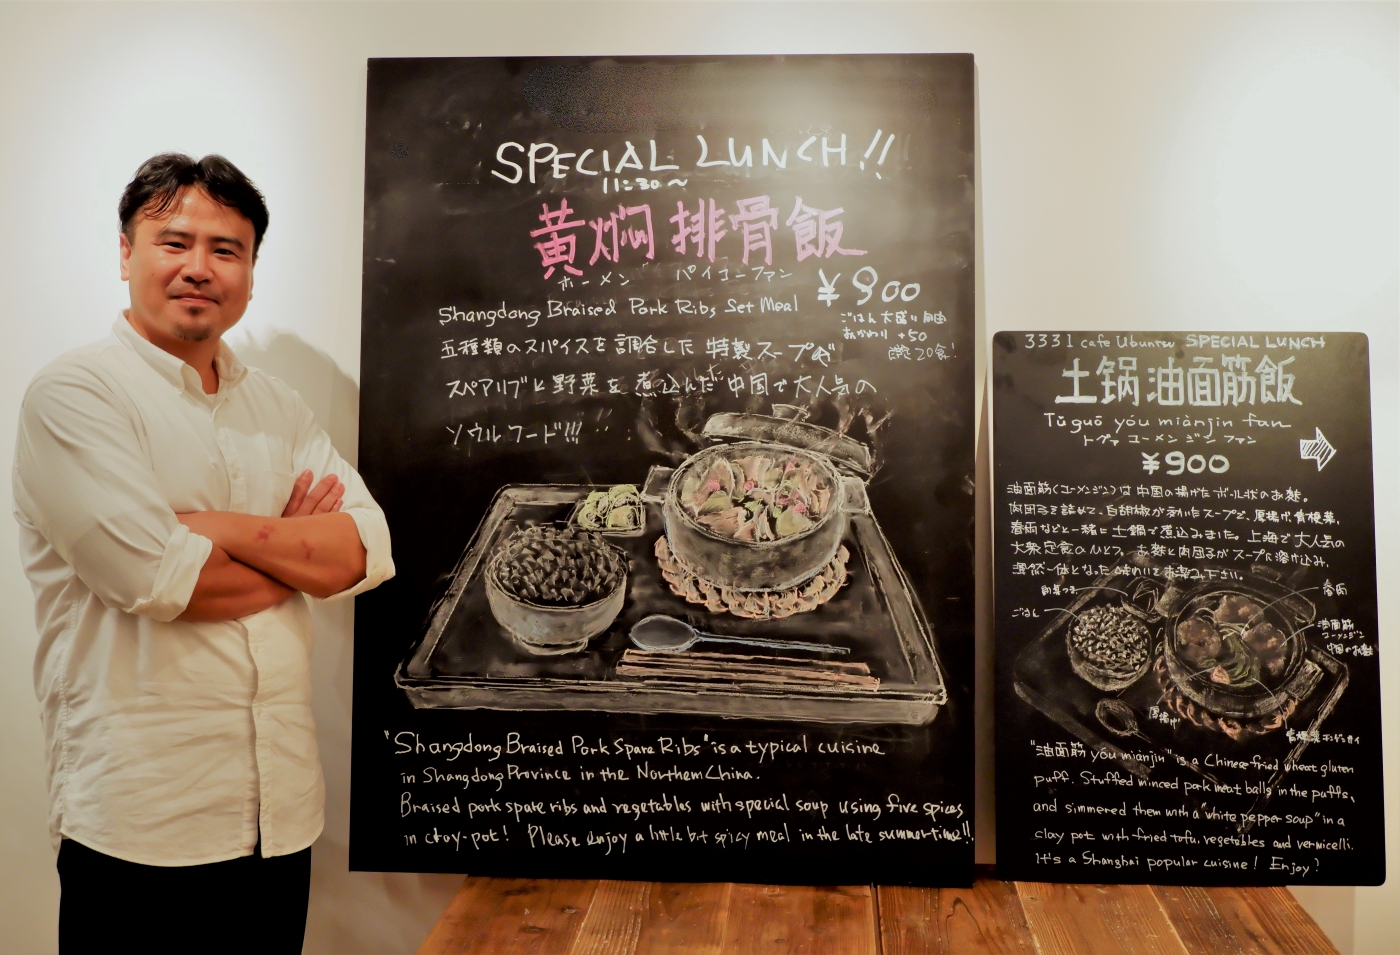 SPECIAL LUNCH!!
11:30～
黄焖排骨飯
ホーメン パイコーファン
¥900
Shangdong Braised Pork Ribs Set Meal
ごはん大盛り自由
おかわり +50
限定20食!
五種類のスパイスを調合した特製スープで
スペアリブと野菜を煮込んだ中国で大人気の
ソウルフード!!!
"Shangdong Braised Pork Spare Ribs" is a typical cuisine
in Shangdong Province in the Northern China.
Braised pork spare ribs and vegetables with special soup using five spices
in clay-pot! Please enjoy a little bit spicy meal in the late summertime!!
3331 cafe Ubuntsu SPECIAL LUNCH
土锅油面筋飯
Tǔ guō yóu miànjin fan
トグゥ ユーメンジン ファン
¥900
油面筋(ユーメンジン)は中国の揚げたボール状のお麩。
肉団子を詰めて、白胡椒が効いたスープで、厚揚げ、青梗菜、
春雨などと一緒に土鍋で煮込みました。上海で大人気の
大衆定食のひとつ。お麩と肉団子がスープに溶け込み、
渾然一体となった味わりをお楽み下さい。
ごはん
油面筋
ユーメンジン
中国のお麩
厚揚げ
青梗菜
"油面筋 yóu miànjin" is a Chinese fried wheat gluten
puff. Stuffed minced pork meat balls in the puffs,
and simmered them with a "white pepper soup" in a
clay pot with fried tofu, vegetables and vermicelli.
It's a Shanghai popular cuisine! Enjoy!